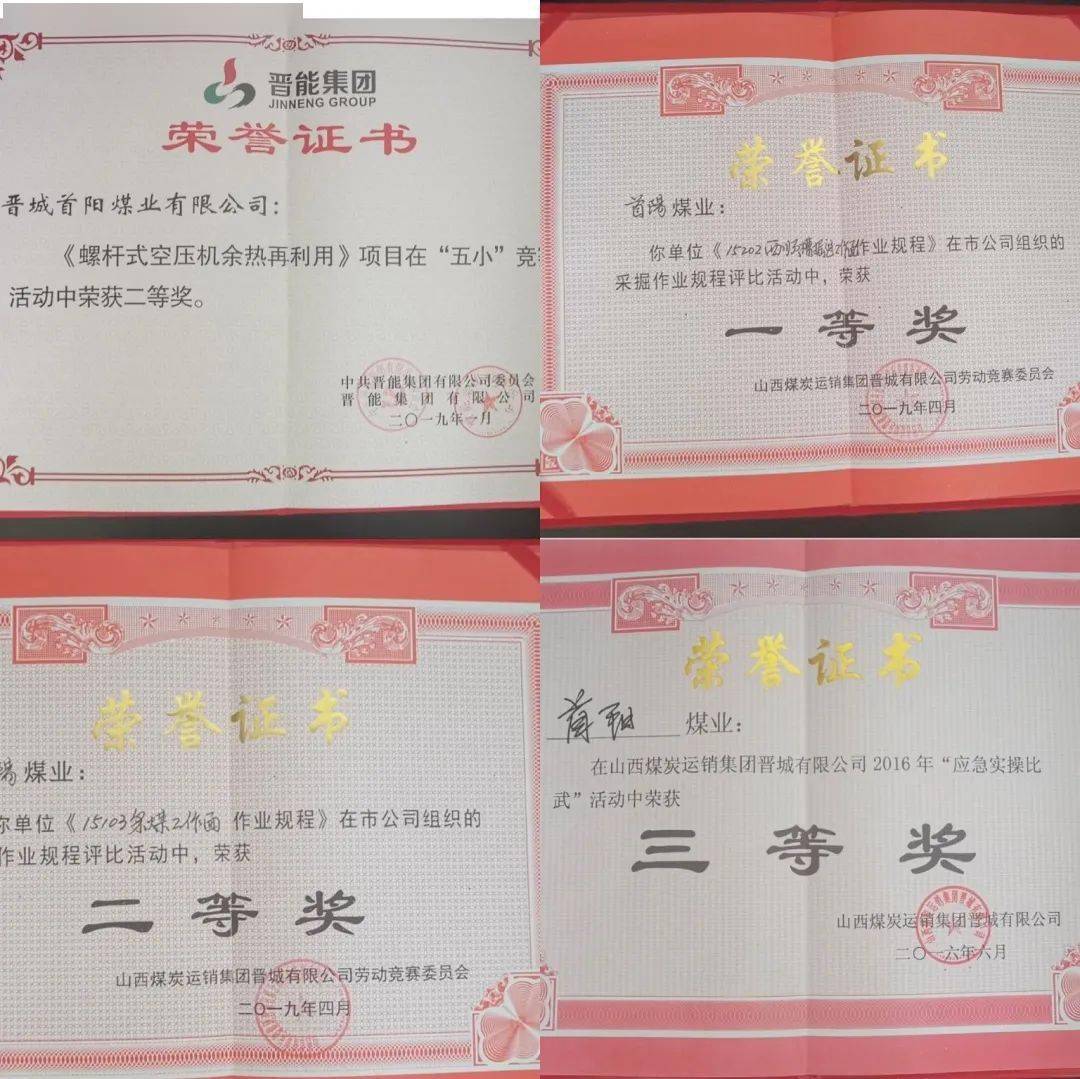 晋能集团
JINNENG GROUP
荣誉证书
晋城首阳煤业有限公司：
《螺杆式空压机余热再利用》项目在“五小”竞
活动中荣获二等奖。
中共晋能集团有限公司委员会
晋能集团有限公司
二〇一九年一月
荣誉证书
首阳煤业：
你单位《15202 作业规程》在市公司组织的
采掘作业规程评比活动中，荣获
一等奖
山西煤炭运销集团晋城有限公司劳动竞赛委员会
二〇一九年四月
荣誉证书
煤业：
你单位《15103采煤工作面 作业规程》在市公司组织的
作业规程评比活动中，荣获
二等奖
山西煤炭运销集团晋城有限公司劳动竞赛委员会
二〇一九年四月
荣誉证书
首阳 煤业：
在山西煤炭运销集团晋城有限公司 2016 年“应急实操比
武”活动中荣获
三等奖
山西煤炭运销集团晋城有限公司
二〇一六年六月